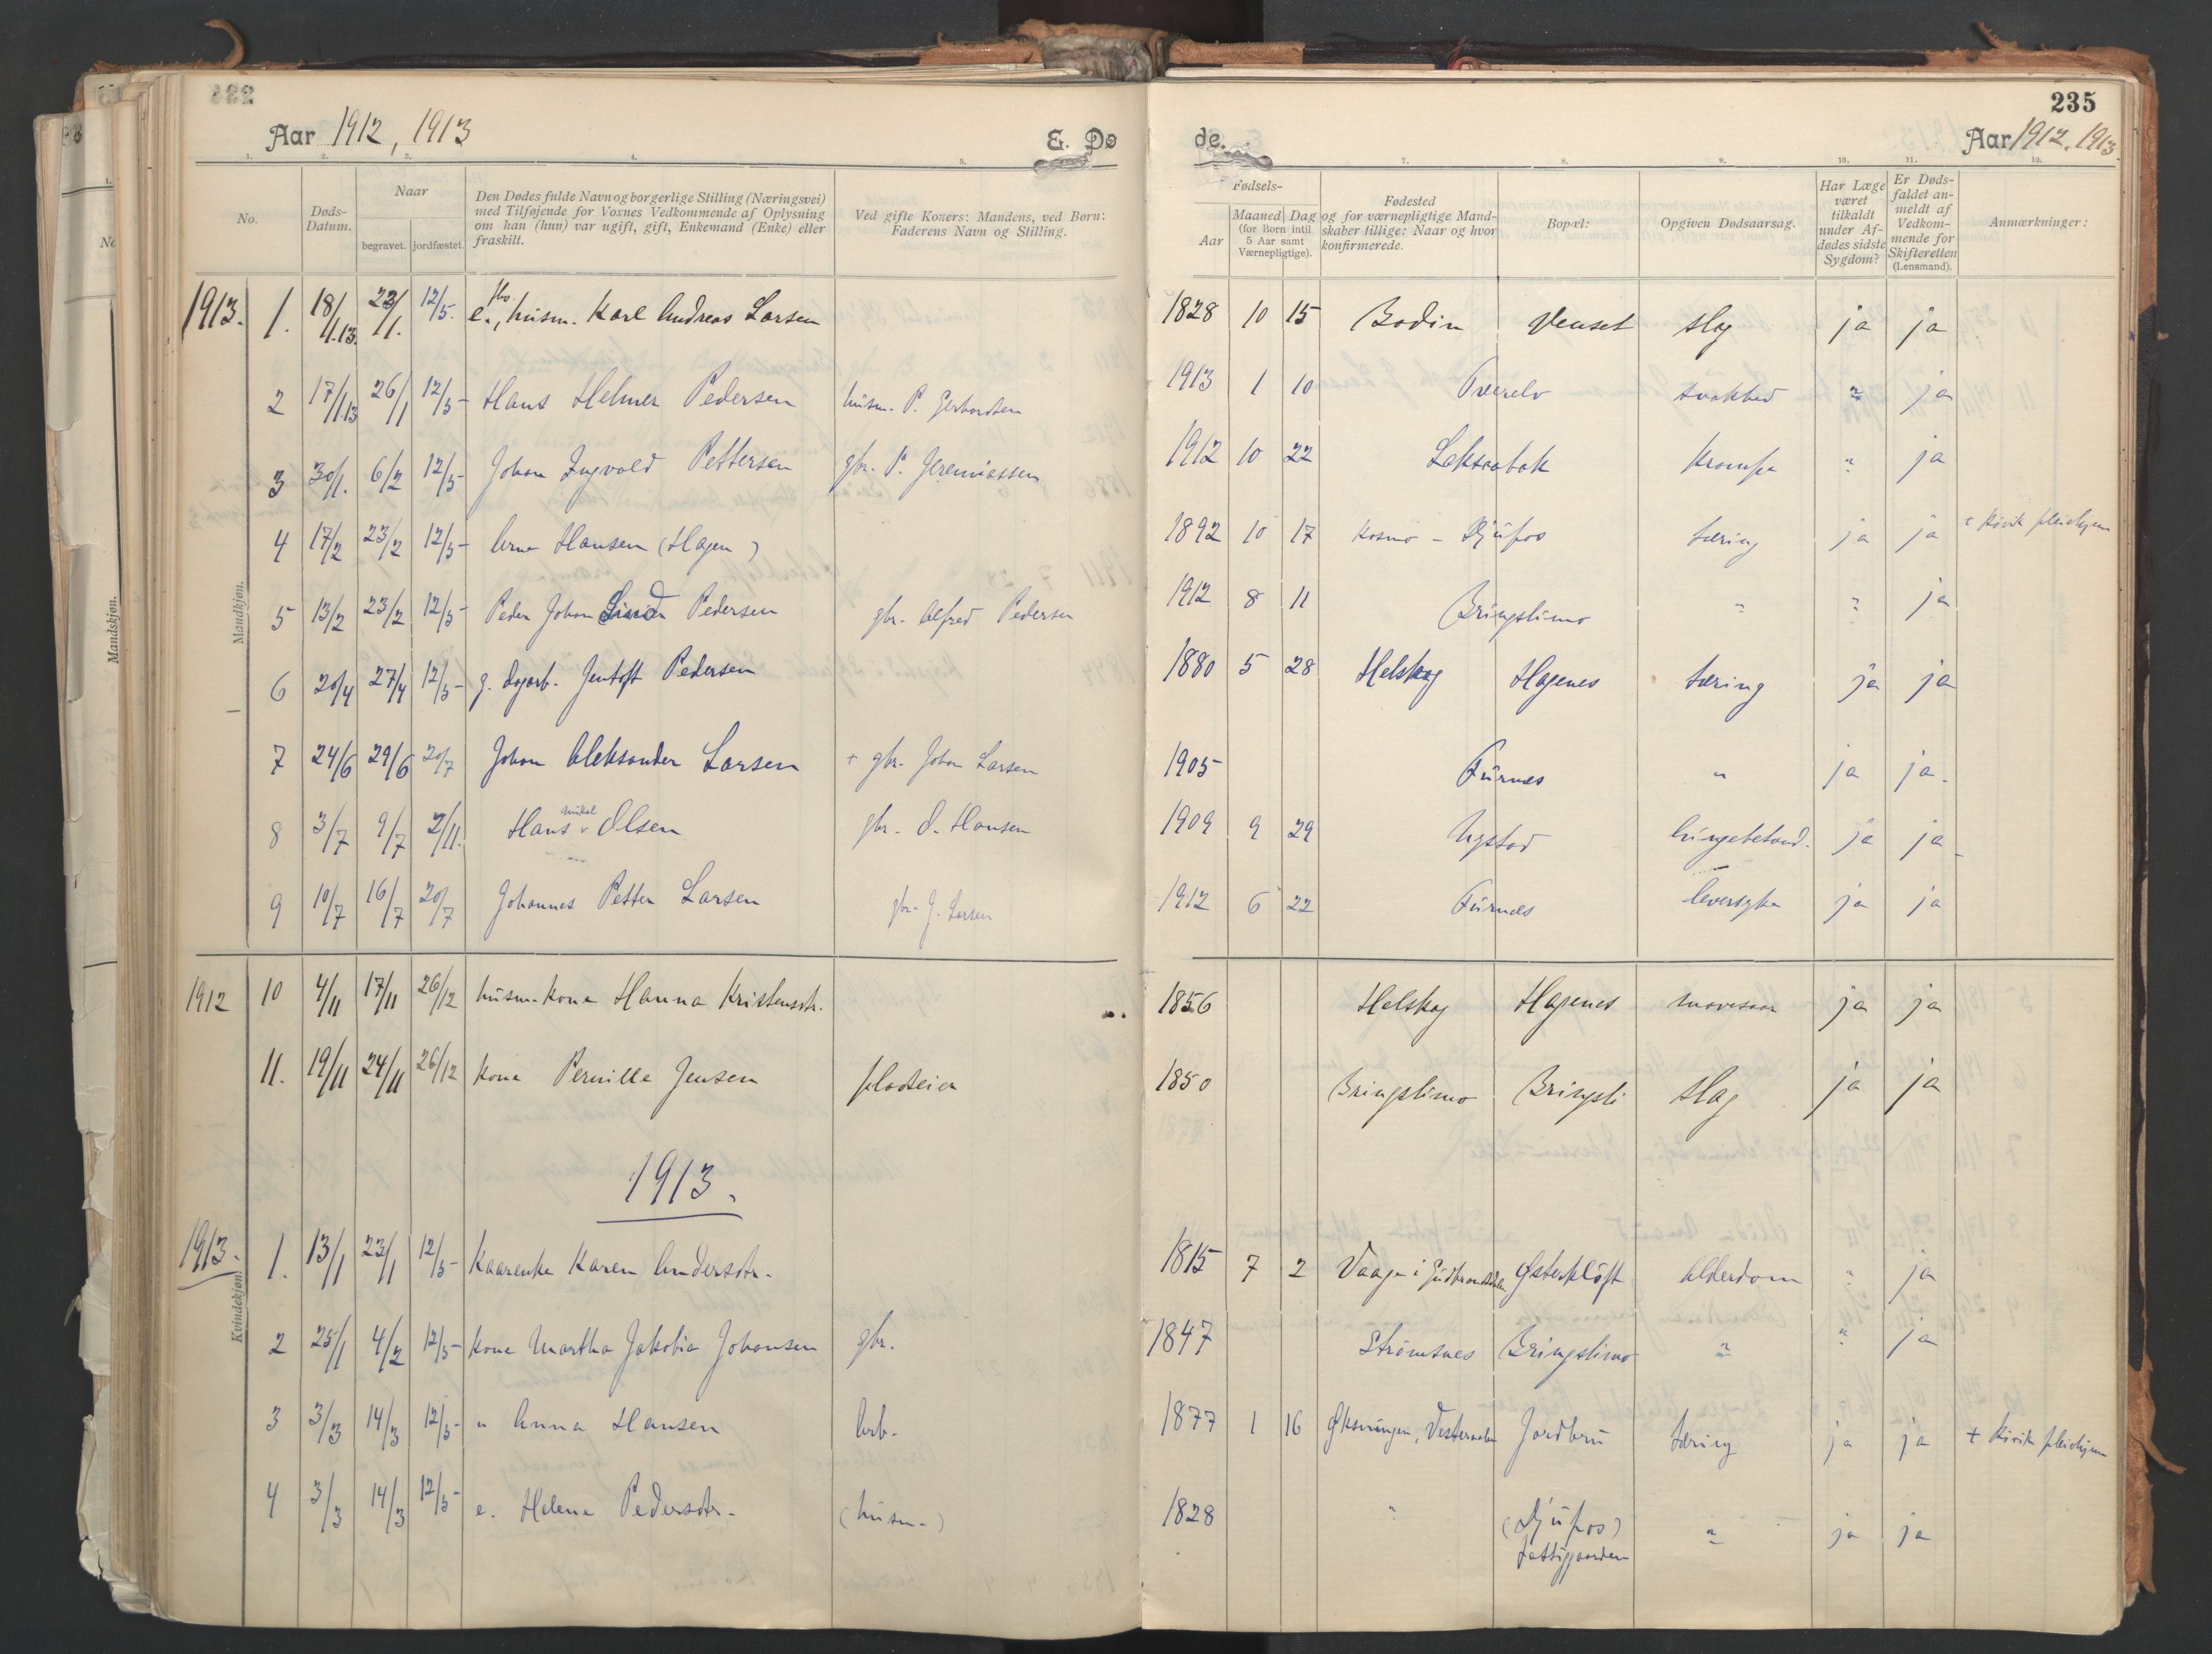 235
Aar 1912, 1913 E. Dø de. Aar 1912, 1913
1. 2. 3. 4. 5. 7. 8. 9. 10. 11. 12.
No. Døds-Datum. Naar begravet. jordfæstet. Den Dødes fulde Navn og borgerlige Stilling (Næringsvei) med Tilføjende for Voxnes Vedkommende af Oplysning om han (hun) var ugift, gift, Enkemand (Enke) eller fraskilt. Ved gifte Koners: Mandens, ved Børn: Faderens Navn og Stilling. Fødsels- Aar Maaned Dag (for Børn intil 5 Aar samt Værnepligtige). Fødested og for værnepligtige Mandskaber tillige: Naar og hvor konfirmerede. Bopæl: Opgiven Dødsaarsag. Har Læge været tilkaldt under Afdødes sidste Sygdom? Er Dødsfaldet anmeldt af Vedkommende for Skifteretten (Lensmand). Anmærkninger:
Mandkjøn.
1913. 1. 18/1.13. 23/1. 12/5. e., husm. Karl Andreas Larsen 1828 10 15 Bodin Venset slag ja ja
2 17/1.13 26/1 12/5- Hans Helmer Pedersen husm. P. Gerhardsen 1913 1 10 Tverelv svakhed " ja
3 30/1. 6/2 12/5- Johan Ingvald Pettersen gbr. P. Jeremiassen 1912 10 22 Leksaabak Krampe " ja
4 17/2 23/2 12/5- Arne Hansen (Hagen) 1892 10 17 Kosmo - Djupos tæring ja ja + Kivik pleiehjem
5 13/2 23/2 12/5- Peder Johan Pedersen gbr. Alfred Pedersen 1912 8 11 Bringslimo " " ja
6 20/4 27/4 12/5- g. dagarb. Jentoft Pedersen 1880 5 28 Helskog Hagenes tæring ja ja
7 24/6 29/6 20/7 Johan Aleksander Larsen + gbr. Johan Larsen 1905 Furnes " ja ja.
8 3/7 9/7 2/11. Hans Mikal Olsen gbr. O. Hansen 1909 9 29 Nystad lungebetænd. ja ja-
9 10/7 16/7 20/7 Johannes Petter Larsen gbr. J. Larsen 1912 6 22 Furnes leversyke ja ja
1912 10 4/11 17/11 26/12 husm. kone Hanna Kristensdtr. 1856 Helskog Hagenes mavesaar ja ja
11. 19/11 24/11 26/12 kone Pernille Jensen pladseier 1850 Bringslimo Bringsli slag ja ja
1913.
Kvindekjøn.
1913. 1. 13/1 23/1 12/5- Kaarenke Karen Andersdtr. 1815 7 2 Vaage i Gudbrandsdalen Østerkløft Alderdom " ja
2 25/1 4/2 12/5- kone Martha Jakobia Johansen gbr. 1847 Strømsnes Bringslimo " " ja
3 3/3 14/3 12/5- " Anna Hansen Arb. 1877 1 16 Øksningen, Vesteraalen Jordbru tæring ja ja + Kivik pleiehjem
4 3/3 14/3 12/5- e. Helena Pedersdtr. (husm.) 1828 " (Djupos) Fattiggaarden " ja ja